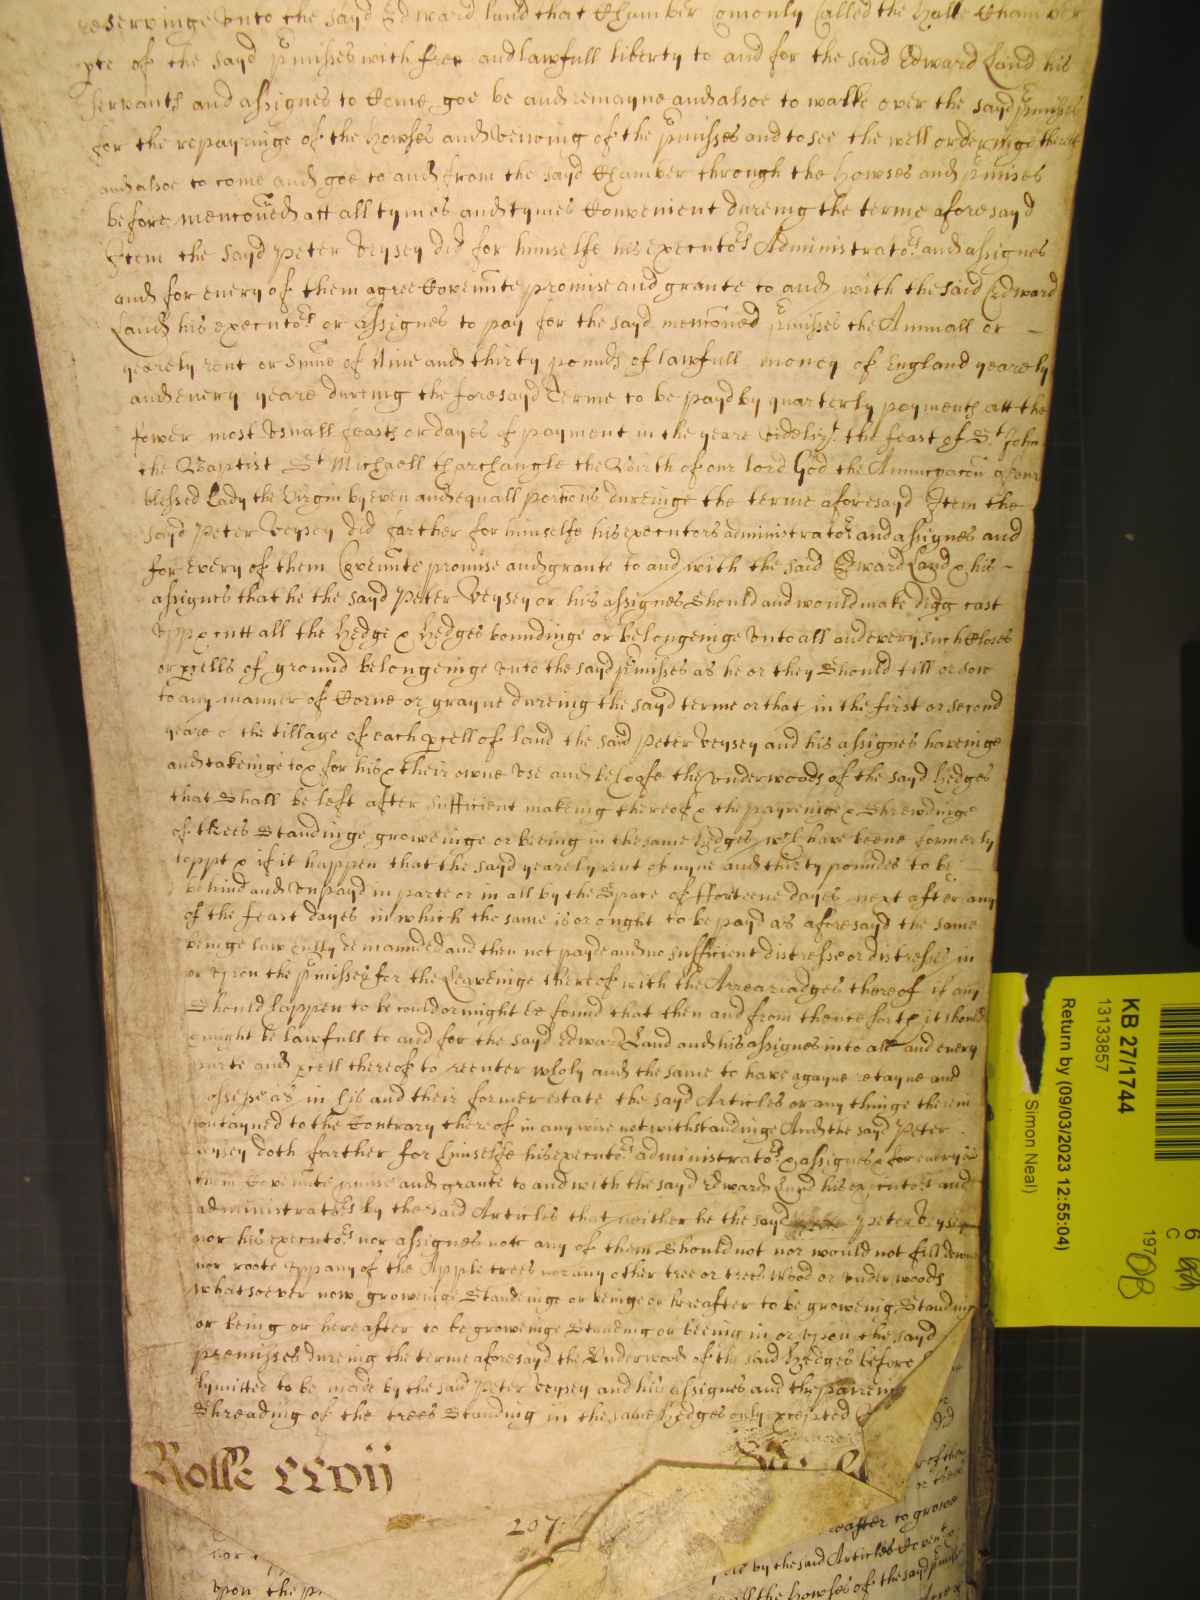 reservinge vnto the sayd Edward land that Chamber Comonly Called the Halle Chamber
pte of the sayd pmisses with free and lawfull liberty to and for the said Edward Land his
servants and assignes to Come goe be and remayne and alsoe to walke over the sayd pmisses
for the repayringe of the howses and veiwing of the pmisses and to see the well orderinge thereof
and alsoe to come and goe to and from the sayd Chamber through the howses and pmises
before menconed att all tymes and tymes Convenient dureing the terme aforesayd
Item the sayd Peter Veysey did for himselfe his executors Administrators and assignes
and for euery of them agree Covennte promise and grante to and with the said Edward
Land his executors or assignes to pay for the sayd menconed pmisses the Annuall or
yearely rent or Sume of Nine and thirty pounds of lawfull money of England yearely
and euery yeare dureing the foresayd Terme to be payd by quarterly payments att the
fower most Vsuall feasts or dayes of payment in the yeare Videlizt the feast of St John
the Baptist St Michaell tharchangle the Birth of our lord God the Annunciacon of our
blessed Lady the Virgin by even and equall portions dureinge the terme aforesayd Item the
sayd Peter Veysey did farther for himselfe his executors administrators and assignes and
for every of them Covennte promise and grante to and with the said Edward Land & his
assignes that he the sayd Peter Veysey or his assignes Should and would make digg cast
Vpp & cutt all the hedge & hedges boundinge or belongeinge Vnto all and every such Closes
or pcells of ground belongeinge vnto the sayd pmisses as he or they Should till or sow
to any manner of Corne or grayne dureing the sayd terme or that in the first or second
yeare of the tillage of each pcell of land the said Peter Veysey and his assignes haveinge
and takeinge to & for his & their owne Vse and behoofe the vnderwoods of the sayd hedges
that Shall be left after sufficient makeing thereof & the & Shrewdinge
of trees Standinge groweinge or being in the same hedges wch have beene formerly
toppt & if it happen that the sayd yearely rent of nyne and thirty poundes to be
behind and Vnpayd in parte or in all by the Space of ffowrteene dayes next after any
of the feast dayes in which the same is or ought to be payd as aforesayd the same
beinge lawfully demaunded and then not payde and no sufficient distresse or distresses in
or vpon the pmisses for the Leaveinge thereof with the Arrearadges thereof if any
Should happen to be could or might be found that then and from thence forth it should
might be lawfull to and for the sayd Edward Land and his assignes into all and every
parte and pcell thereof to reenter wholy and the same to have agayne retayne and
ossesse as in his and their former estate the sayd Articles or any thinge therein
ontayned to the Contrary thereof in any wise notwithstandinge And the sayd Peter
eysey doth farther for himselfe his executors administrators & assignes & for every of
them Covennte pmise and grante to and with the sayd Edward Land his executors and
administrators by the said Articles that neither he the sayd Peter Veysey
nor his executors nor assignes nore any of them Should not nor would not fell downe
nor roote Vpp any of the Apple trees nor any other tree or trees Wood or vnder woods
whatsoever now groweinge Standeinge or beinge or hereafter to be groweing Standing
or being or hereafter to be groweinge Standing or beeing in or vpon the sayd
premisses dureing the terme aforesayd the Vnderwoods of the said hedges before
lymitted to be made by the said Peter Veysey and his assignes and the
Shreading of the trees Standing in the same hedges only excepted
Rolle CCVij
207:
did
or of them
or these
eafter to growe
vpon the
by the said Articles
all the howses of the sayd
KB 27/1744
13133857
Return by (09/03/2023 12:55:04)
Simon Neal)
6
C
197